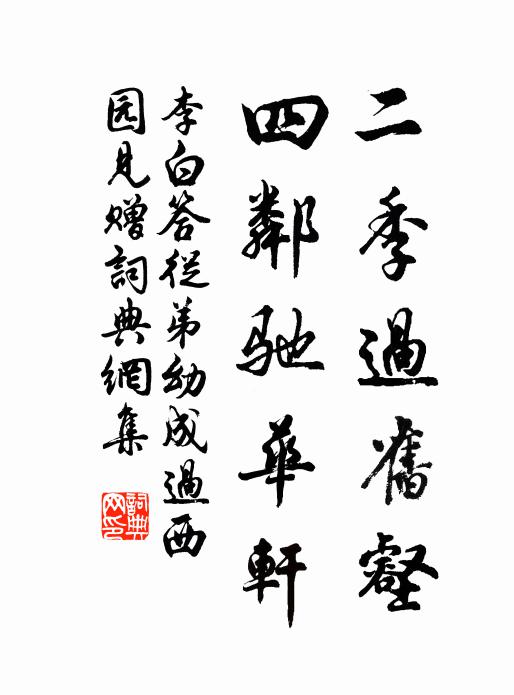 二季過舊壑
四鄰馳華軒
李白答從弟幼成過西
园見贈詞典網集
詞典网印